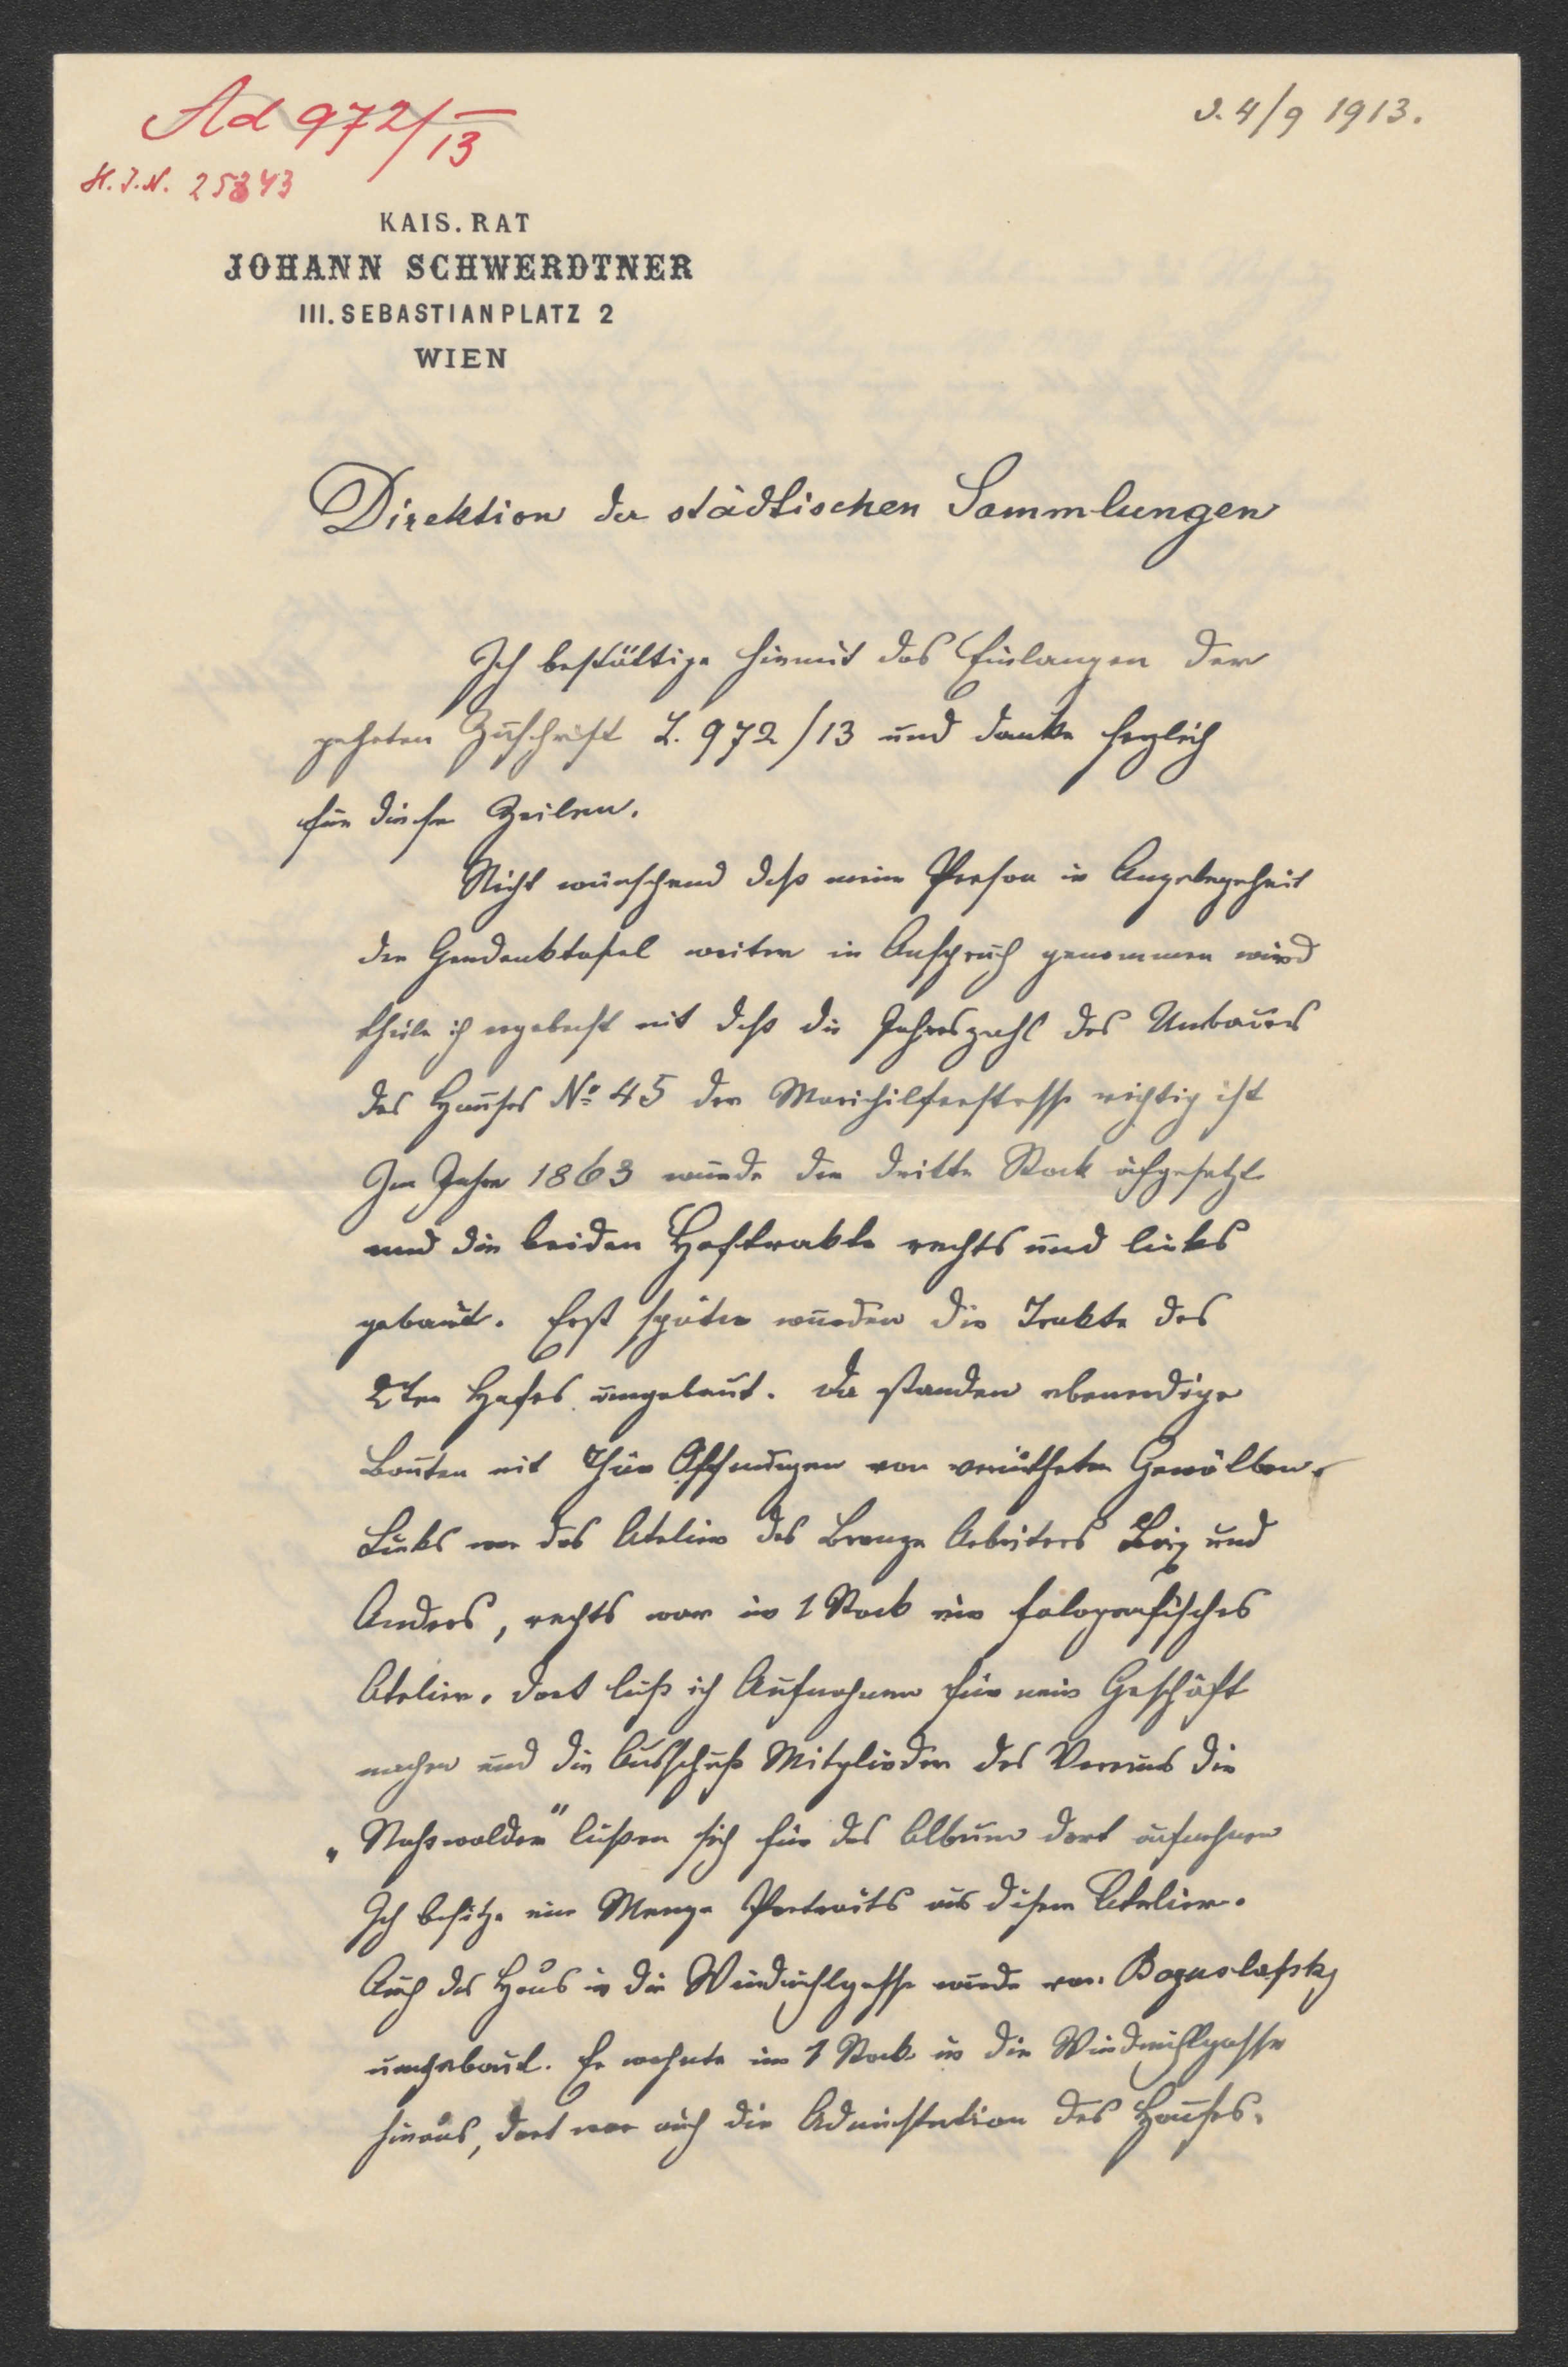 Ad 972/13
d. 4/9 1913.
H.I.N. 25843
KAIS. RAT
JOHANN SCHWERDTNER
III. SEBASTIANPLATZ 2
WIEN
Direktion der städtischen Sammlungen
Ich bestättige hiemit das Einlangen der
geehrten Zuschrift Z. 972/13 und danke herzlich
für diese Zeilen.
Nicht wünschend daß meine Person in Angelegenheit
der Gendenktafel weiter in Anspruch genommen wird
theile ich ergebenst mit daß die Jahreszahl des Umbaues
des Hauses No 45 der Mariahilferstrasse richtig ist
Im Jahre 1863 wurde der dritte Stock aufgesetzt
und die beiden Hoftrakte rechts und links
gebaut. Erst später wurden die Trakte des
2ten Hofes umgebaut. Da standen ebenerdige
Bauten mit Thür Öffnungen von vermitheten Gewölben.
Links war das Atelier des Bronze Arbeiters und
Anders, rechts war im 1 Stock ein fotografisches
Atelier. Dort ließ ich Aufnahmen für mein Geschäft
machen und die Ausschuß Mitglieder des Vereins die
„Naßwalder" ließen sich für das Album dort aufnehmen
Ich besitze eine Menge Portraits aus disem Atelier.
Auch das Haus in die Windmühlgasse wurde von Boguslafsky
umgebaut. Er wohnte im 1 Stock in die Windmühlgasse
hinaus, dort war auch die Administration des Hauses.